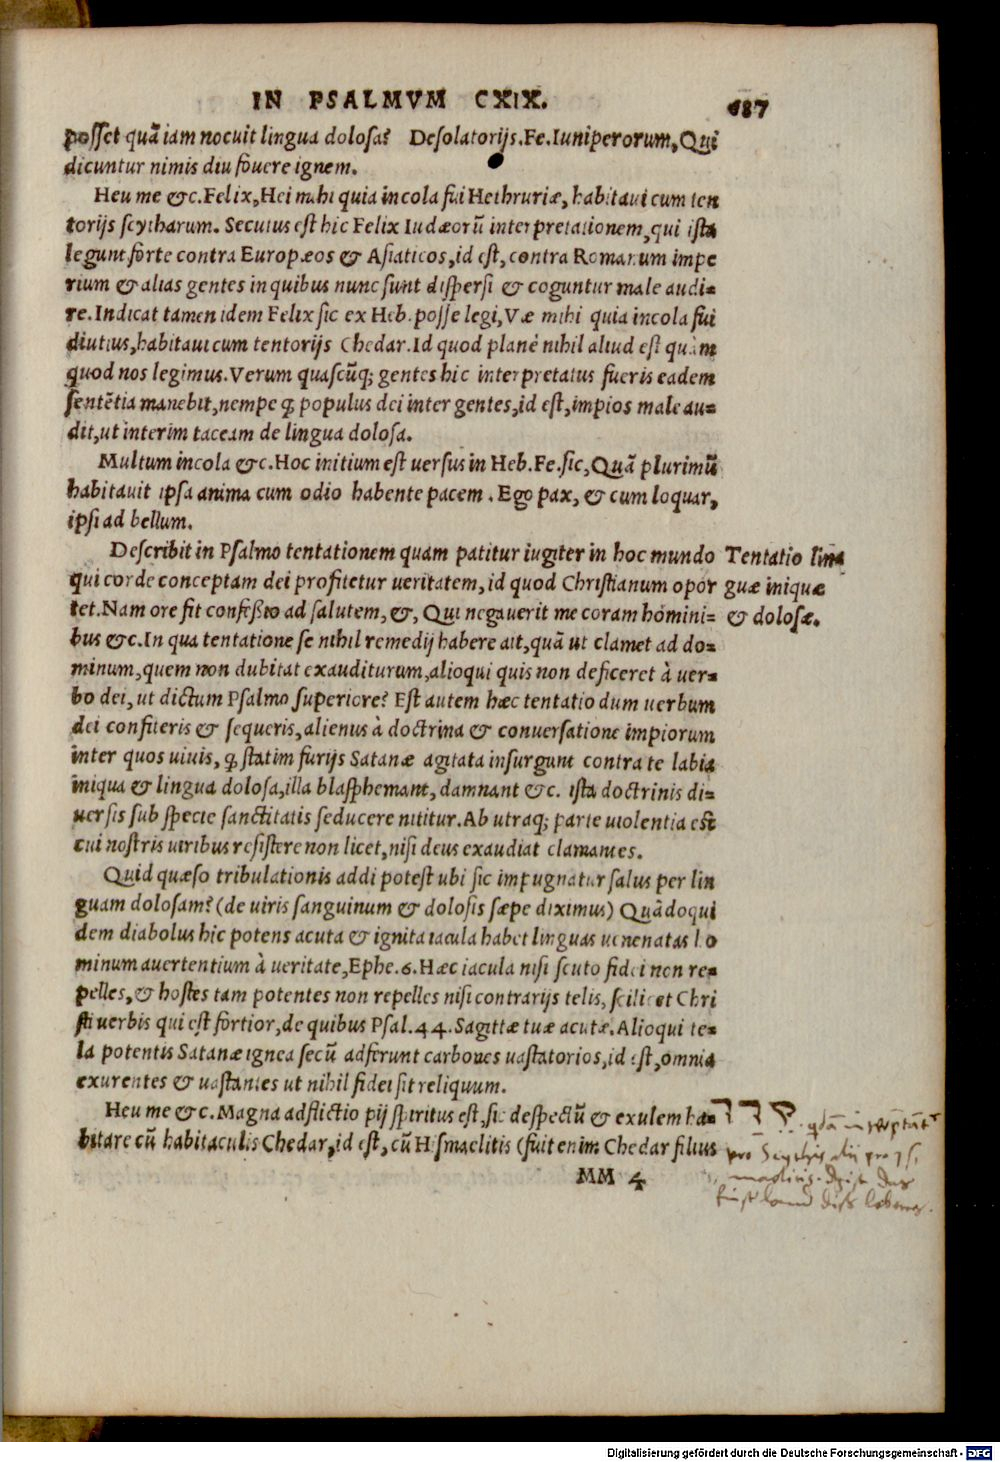 IN PSALMVM CXIX. 687
posset quã iam nocuit lingua dolosa? Desolatorijs. Fe. Iuniperorum, Qui
dicuntur nimis diu fouere ignem.
Heu me &c. Felix, Hei mihi quia incola fui Hethruriæ, habitaui cum ten
torijs scytharum. Secutus est hic Felix Iudæorũ interpretationem, qui ista
legunt forte contra Europæos & Asiaticos, id est, contra Romanum impe
rium & alias gentes in quibus nunc sunt dispersi & coguntur male audi=
re. Indicat tamen idem Felix sic ex Heb. posse legi, Væ mihi quia incola fui
diutius, habitaui cum tentorijs Chedar. Id quod planè nihil aliud est quàm
quod nos legimus. Verum quascũq; gentes hic interpretatus fueris eadem
sentẽtia manebit, nempe ꝙ populus dei inter gentes, id est, impios male au=
dit, ut interim taceam de lingua dolosa.
Multum incola &c. Hoc initium est uersus in Heb. Fe. sic, Quã plurimũ
habitauit ipsa anima cum odio habente pacem. Ego pax, & cum loquar,
ipsi ad bellum.
Describit in Psalmo tentationem quam patitur iugiter in hoc mundo
qui corde conceptam dei profitetur ueritatem, id quod Christianum opor
tet. Nam ore fit confeßio ad salutem, &, Qui negauerit me coram homini=
bus &c. In qua tentatione se nihil remedij habere ait, quã ut clamet ad do=
minum, quem non dubitat exauditurum, alioqui quis non deficeret à uer=
bo dei, ut dictum Psalmo superiore? Est autem hæc tentatio dum uerbum
dei confiteris & sequeris, alienus à doctrina & conuersatione impiorum
inter quos uiuis, ꝙ statim furijs Satanæ agitata insurgunt contra te labia
iniqua & lingua dolosa, illa blasphemant, damnant &c. ista doctrinis di=
uersis sub specie sanctitatis seducere nititur. Ab utraq; parte uiolentia est
cui nostris uiribus resistere non licet, nisi deus exaudiat clamantes.
Quid quæso tribulationis addi potest ubi sic impugnatur salus per lin
guam dolosam? (de uiris sanguinum & dolosis sæpe diximus) Quãdoqui
dem diabolus hic potens acuta & ignita iacula habet linguas uenenatas ho
minum auertentium à ueritate, Ephe. 6. Hæc iacula nisi scuto fidei non re=
pelles, & hostes tam potentes non repelles nisi contrarijs telis, scilicet Chri
sti uerbis qui est fortior, de quibus Psal. 44. Sagittæ tuæ acutæ. Alioqui te=
la potentis Satanæ ignea secũ adferunt carbones uastatorios, id est, omnia
exurentes & uastantes ut nihil fidei sit reliquum.
Heu me &c. Magna adflictio pij spiritus est, sic despectũ & exulem ha=
bitare cũ habitaculis Chedar, id est, cũ Hismaelitis (fuit enim Chedar filius
MM 4
Tentatio lin=
guæ iniquæ
& dolosæ.